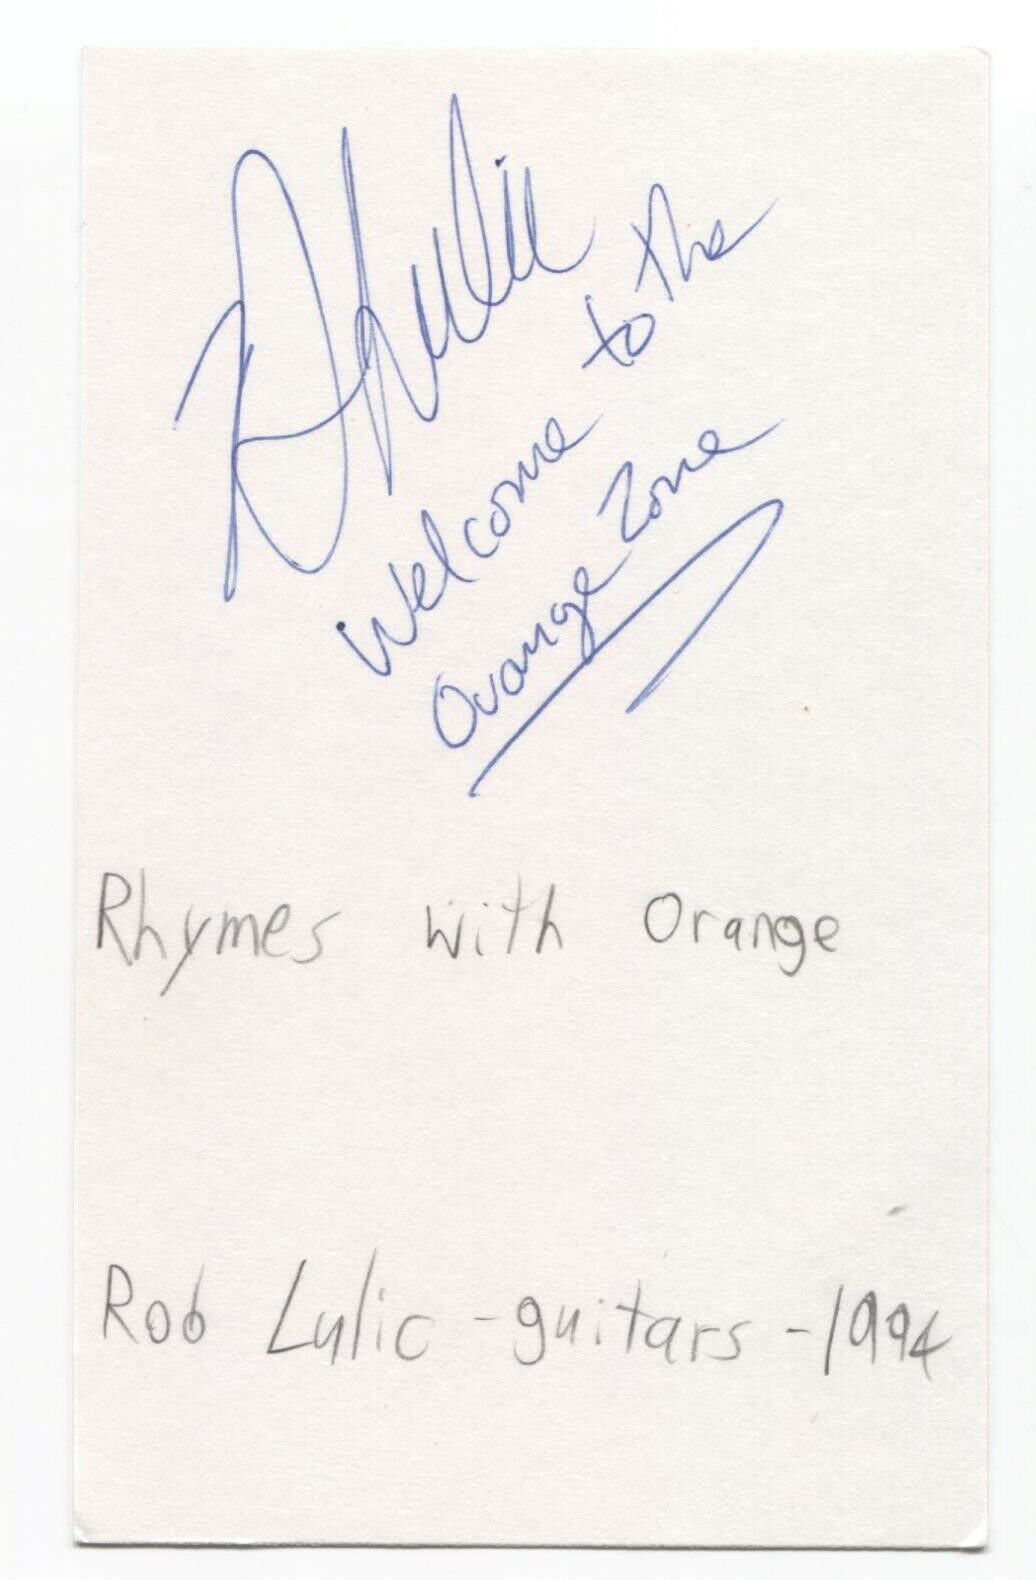 Welcome to the
Orange Zone
Rhymes with Orange
Rob Lulic - guitars - 1994